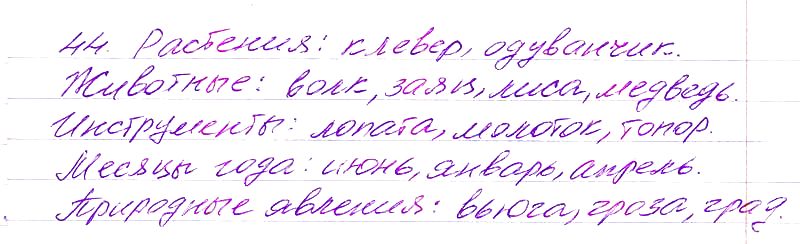 44. Растения: клевер, одуванчик.
Животные: волк, заяц, лиса, медведь.
Инструменты: лопата, молоток, топор.
Месяцы года: июнь, январь, апрель.
Природные явления: вьюга, гроза, град.